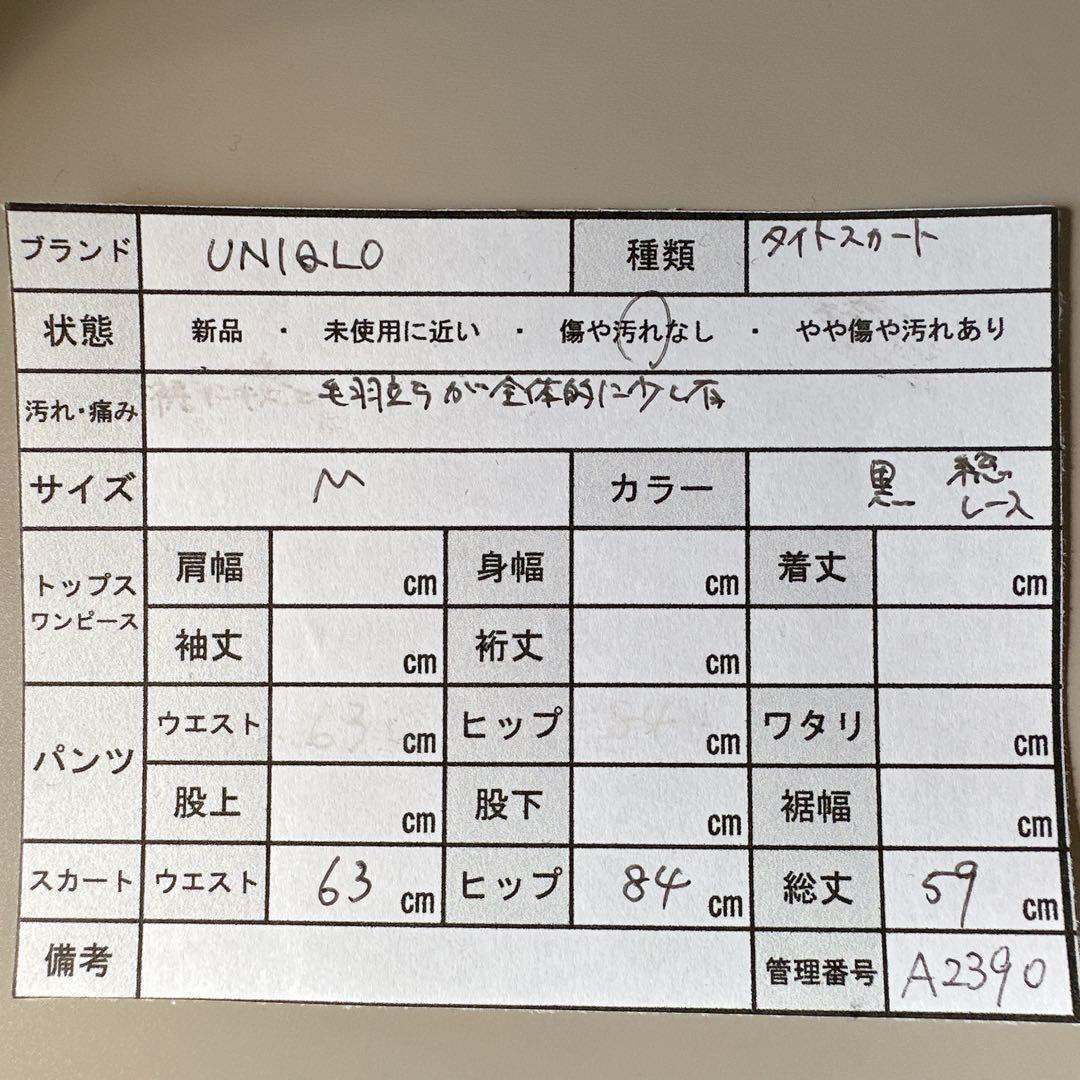 ブランド UNIQLO 種類 タイトスカート
状態 新品 ・ 未使用に近い ・ 傷や汚れなし ・ やや傷や汚れあり
汚れ・痛み 毛羽立ちが全体的に少し有
サイズ M カラー 黒 総レース
トップス ワンピース 肩幅 cm 身幅 cm 着丈 cm
袖丈 cm 裄丈 cm
パンツ ウエスト 63 cm ヒップ 84 cm ワタリ cm
股上 cm 股下 cm 裾幅 cm
スカート ウエスト 63 cm ヒップ 84 cm 総丈 59 cm
備考 管理番号 A2390